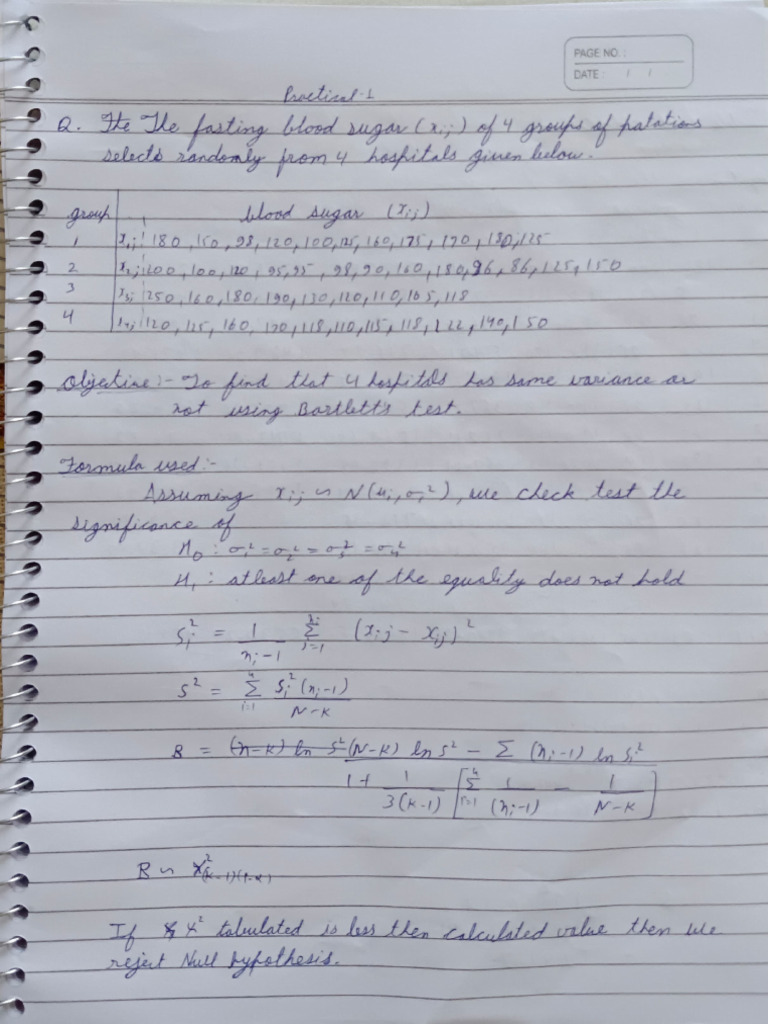 PAGE NO. :
DATE : / /
Practical-1
Q. The The fasting blood sugar (xij) of 4 groups of patations
selects randomly from 4 hospitals given below.
group blood sugar (xij)
1 x1j 180, 150, 98, 120, 100, 125, 160, 175, 170, 130, 125
2 x2j 200, 100, 120, 95, 95, 98, 90, 160, 180, 96, 86, 125, 150
3 x3j 250, 160, 180, 190, 130, 120, 110, 105, 118
4 x4j 120, 125, 160, 170, 118, 110, 115, 118, 122, 140, 150
Objective :- To find that 4 hospitals has same variance or
not using Bartlett's test.
Formula used :-
Assuming xij ~ N(μi, σi²), we check test the
significance of
H0 : σ1² = σ2² = σ3² = σ4²
H1 : atleast one of the equality does not hold
Si² = 1/(ni-1) Σ j=1 ni (xij - xij)²
S² = Σ i=1 4 Si²(ni-1) / N-K
B = (n-k) ln S² (N-K) ln S² - Σ (ni-1) ln Si² / 1 + 1/3(K-1) [Σ i=1 4 1/(ni-1) - 1/N-K]
B ~ χ²(k-1)(1-α)
If χ² tabulated is less then calculated value then we
reject Null hypothesis.